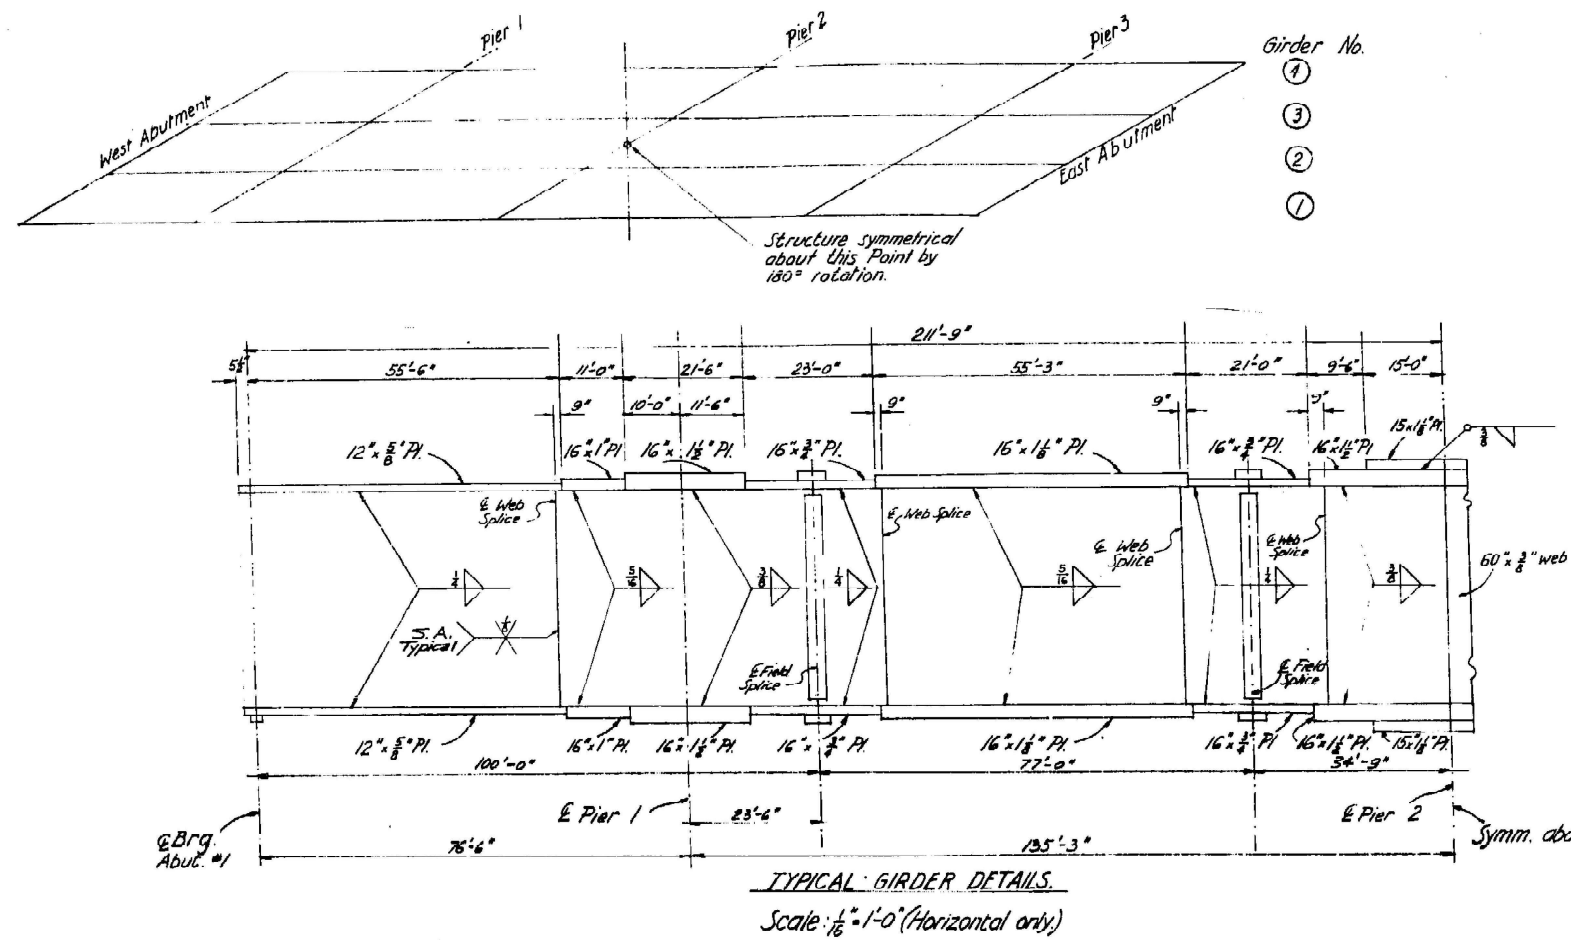 Pier 1
Pier 2
Pier 3
Girder No.
4
3
2
1
West Abutment
East Abutment
Structure symmetrical
about this Point by
180° rotation.
211'-9"
5½"
55'-6"
11'-0"
21'-6"
23'-0"
55'-3"
21'-0"
9'-6"
15'-0"
9"
10'-0"
11'-6"
9"
9"
9"
12"x 5/8" Pl.
16"x 1" Pl.
16"x 1½" Pl.
16"x 3/4" Pl.
16"x 1⅛" Pl.
16"x 3/4" Pl.
16"x 1½" Pl.
15x1⅛" Pl.
3/8
℄ Web
Splice
℄ Web Splice
℄ Web
Splice
℄ Web
Splice
60"x 3/8" web
1/4
5/16
3/8
1/4
5/16
1/4
3/8
S.A.
Typical
1/8
℄ Field
Splice
℄ Field
Splice
12"x 5/8" Pl.
16"x 1" Pl.
16"x 1½" Pl.
16"x 3/4" Pl.
16"x 1⅛" Pl.
16"x 3/4" Pl
16"x 1½" Pl.
15x1⅛" Pl.
100'-0"
77'-0"
34'-9"
℄ Pier 1
23'-6"
℄ Pier 2
℄ Brg.
Abut. #1
Symm. abo
76'-6"
135'-3"
TYPICAL GIRDER DETAILS.
Scale: 1/16"=1'-0" (Horizontal only.)